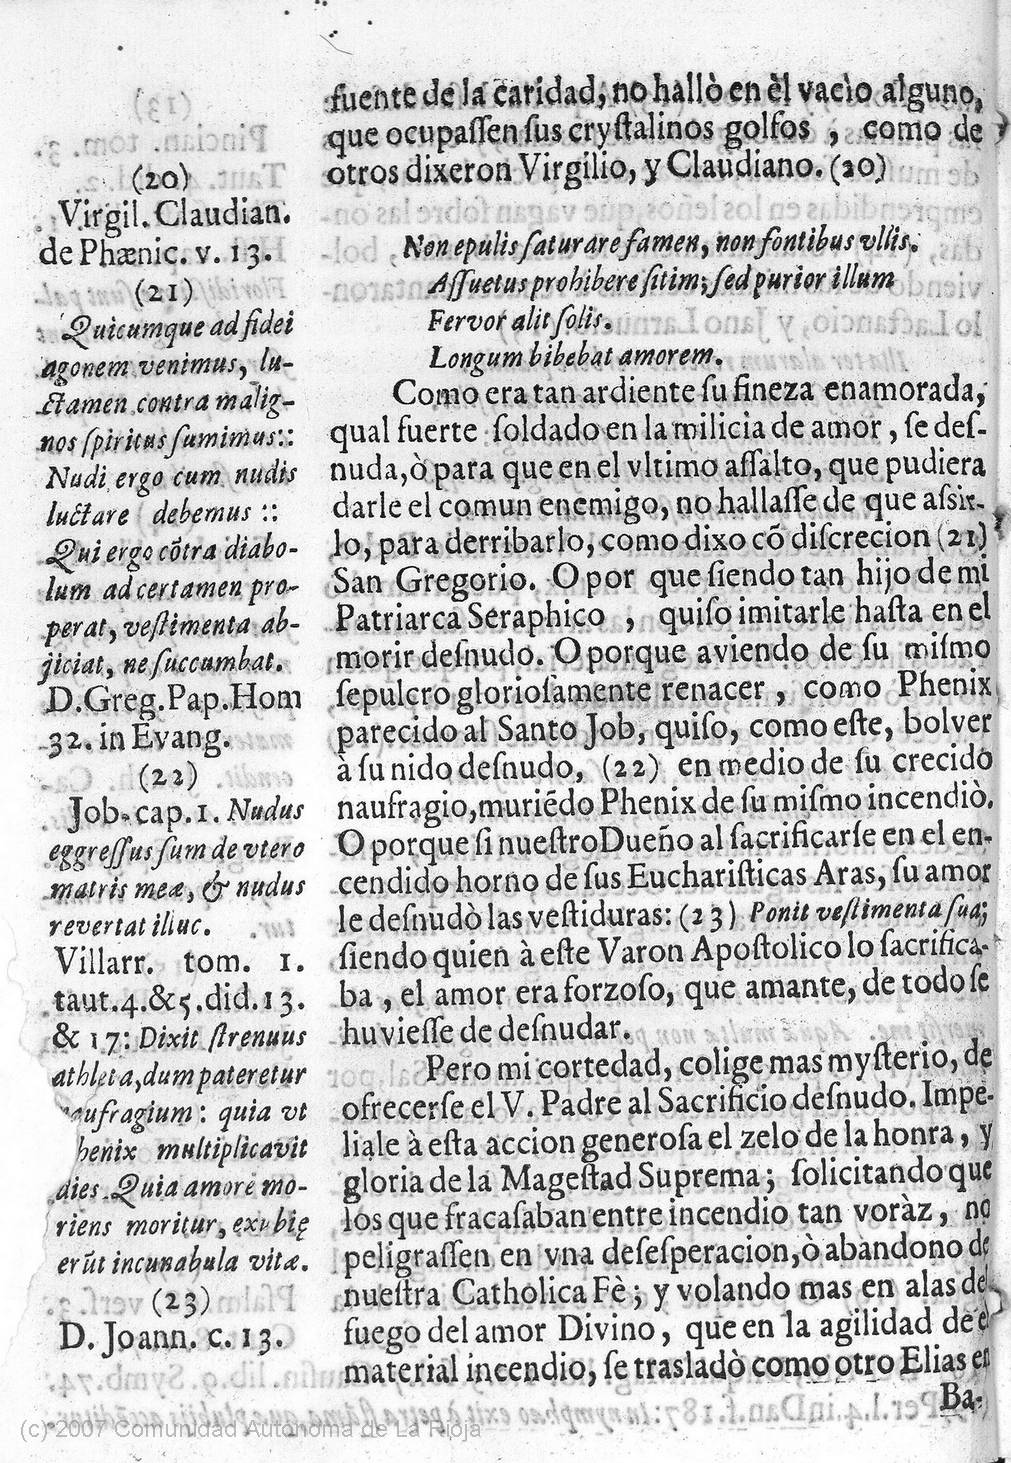 fuente de la caridad, no hallò en èl vacìo alguno,
que ocupaſſen ſus cryſtalinos golfos , como de
otros dixeron Virgilio, y Claudiano. (20)
Non epulis ſaturare famen, non fontibus vllis.
Aſſuetus prohibere ſitim; ſed purior illum
Fervor alit ſolis.
Longum bibebat amorem.
Como era tan ardiente ſu fineza enamorada,
qual fuerte ſoldado en la milicia de amor , ſe deſ-
nuda, ò para que en el vltimo aſſalto, que pudiera
darle el comun enemigo, no hallaſſe de que aſsir-
lo, para derribarlo, como dixo cõ diſcrecion (21)
San Gregorio. O por que ſiendo tan hijo de mi
Patriarca Seraphico , quiſo imitarle haſta en el
morir deſnudo. O porque aviendo de ſu miſmo
ſepulcro glorioſamente renacer , como Phenix
parecido al Santo Job, quiſo, como eſte, bolver
à ſu nido deſnudo, (22) en medio de ſu crecido
naufragio, muriẽdo Phenix de ſu miſmo incendiò.
O porque ſi nueſtro Dueño al ſacrificarſe en el en-
cendido horno de ſus Euchariſticas Aras, ſu amor
le deſnudò las veſtiduras: (23) Ponit veſtimenta ſua;
ſiendo quien à eſte Varon Apoſtolico lo ſacrifica-
ba , el amor era forzoſo, que amante, de todo ſe
huvieſſe de deſnudar.
Pero mi cortedad, colige mas myſterio, de
ofrecerſe el V. Padre al Sacrificio deſnudo. Impe-
liale à eſta accion generoſa el zelo de la honra , y
gloria de la Mageſtad Suprema ; ſolicitando que
los que fracaſaban entre incendio tan voràz , no
peligraſſen en vna deſeſperacion, ò abandono de
nueſtra Catholica Fè ; y volando mas en alas del
fuego del amor Divino , que en la agilidad de el
material incendio, ſe trasladò como otro Elias en
Ba-
(20)
Virgil. Claudian.
de Phænic. v. 13.
(21)
Quicumque ad fidei
agonem venimus, lu-
ctamen contra malig-
nos ſpiritus ſumimus::
Nudi ergo cum nudis
luctare debemus ::
Qui ergo cõtra diabo-
lum ad certamen pro-
perat, veſtimenta ab-
jiciat, ne ſuccumbat.
D. Greg. Pap. Hom
32. in Evang.
(22)
Job. cap. 1. Nudus
eggreſſus ſum de vtero
matris meæ, & nudus
revertat illuc.
Villarr. tom. 1.
taut. 4. & 5. did. 13.
& 17: Dixit ſtrenuus
athleta, dum pateretur
naufragium : quia vt
henix multiplicavit
dies. Quia amore mo-
riens moritur, exubię
erũt incunabula vitæ.
(23)
D. Joann. c. 13.
(c) 2007 Comunidad Autónoma de La Rioja